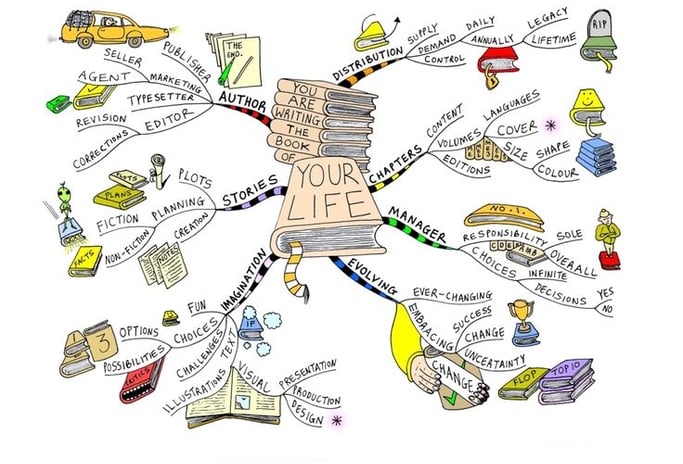 YOU
ARE
WRITING
THE
BOOK
OF
YOUR
LIFE
DISTRIBUTION
SUPPLY
DEMAND
CONTROL
DAILY
ANNUALLY
LEGACY
LIFETIME
RIP
CHAPTERS
CONTENT
VOLUMES
EDITIONS
LANGUAGES
COVER
SIZE
SHAPE
COLOUR
MANAGER
NO. 1.
RESPONSIBILITY
SOLE
OVERALL
CHOICES
INFINITE
DECISIONS
YES
NO
EVOLVING
EVER-CHANGING
EMBRACING
SUCCESS
CHANGE
UNCERTAINTY
CHANGE
FLOP
TOP 10
IMAGINATION
FUN
CHOICES
OPTIONS
POSSIBILITIES
3
CRITICS
CHALLENGES
IF
TEXT
ILLUSTRATIONS
VISUAL
PRESENTATION
PRODUCTION
DESIGN
STORIES
PLOTS
PLANNING
CREATION
FICTION
NON-FICTION
PLOTS
PLANS
FACTS
NOTES
AUTHOR
THE
END.
PUBLISHER
MARKETING
SELLER
AGENT
TYPESETTER
EDITOR
REVISION
CORRECTIONS